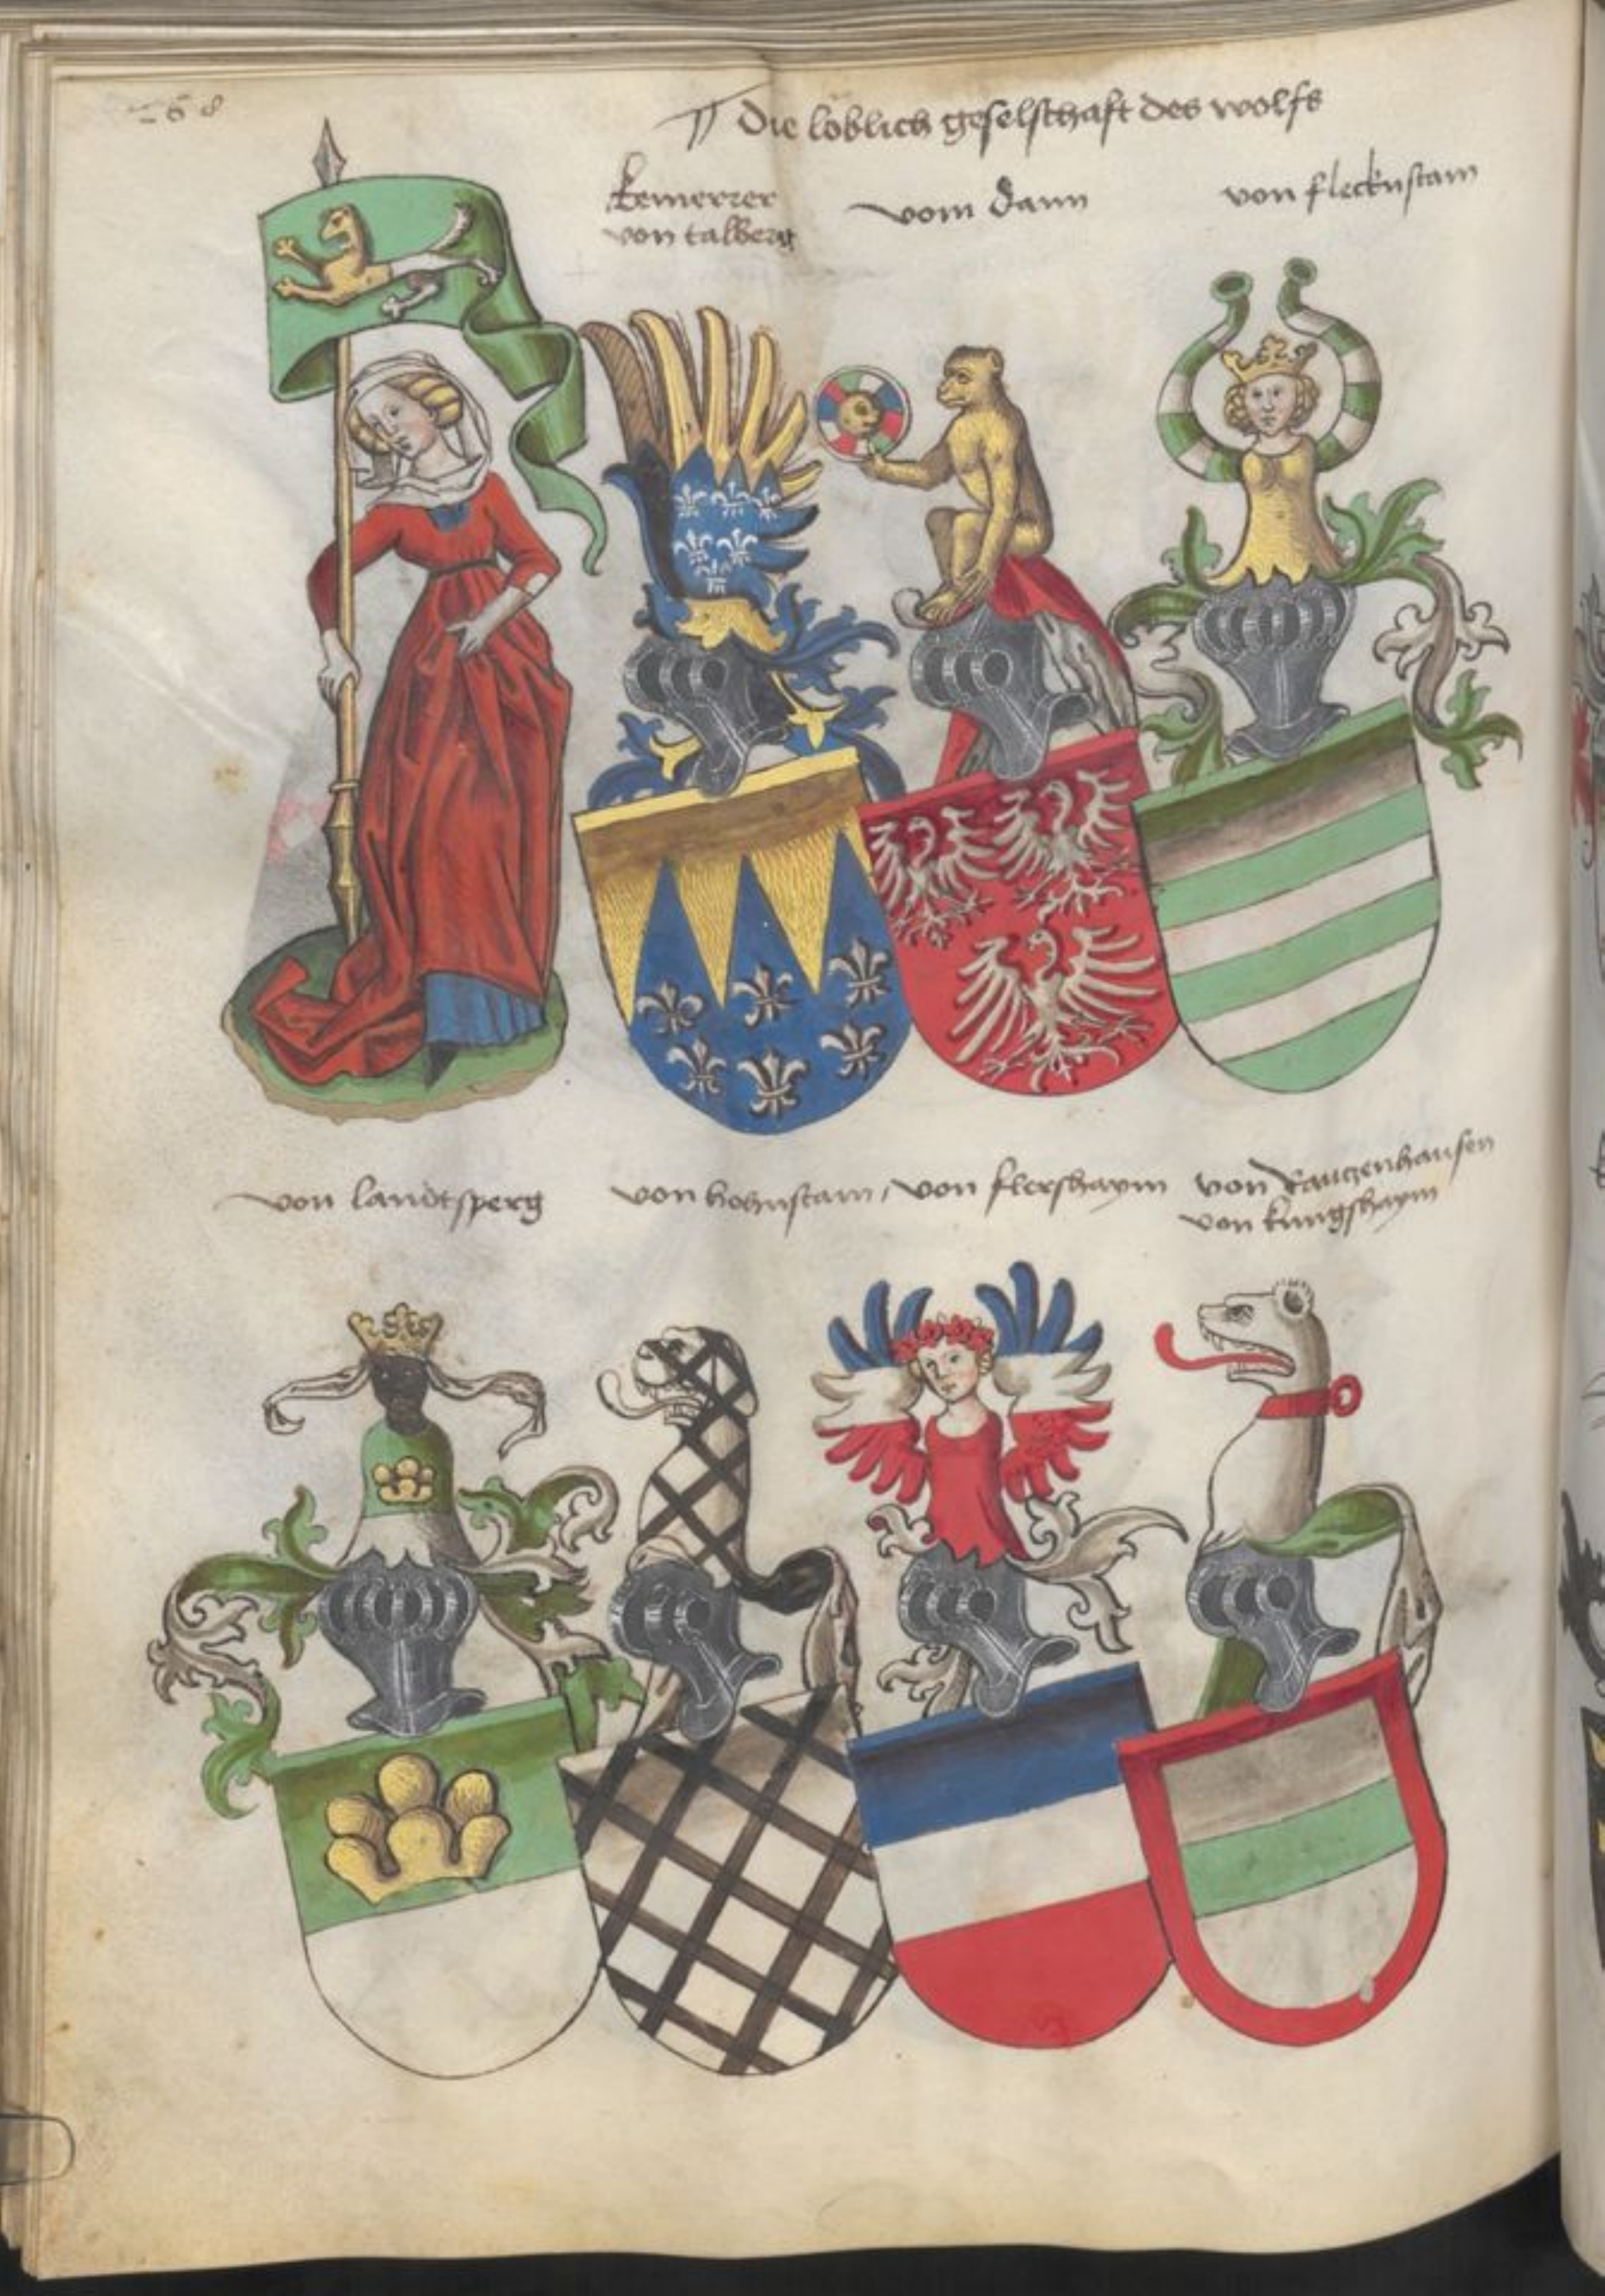 268
Die loblich geselschaft des wolfs
kemerrer
von talberg
vom Dann
von flecknstain
von landtsperg
von hohnstain / von flershaym
von Rautzenhausen
von kungshaym